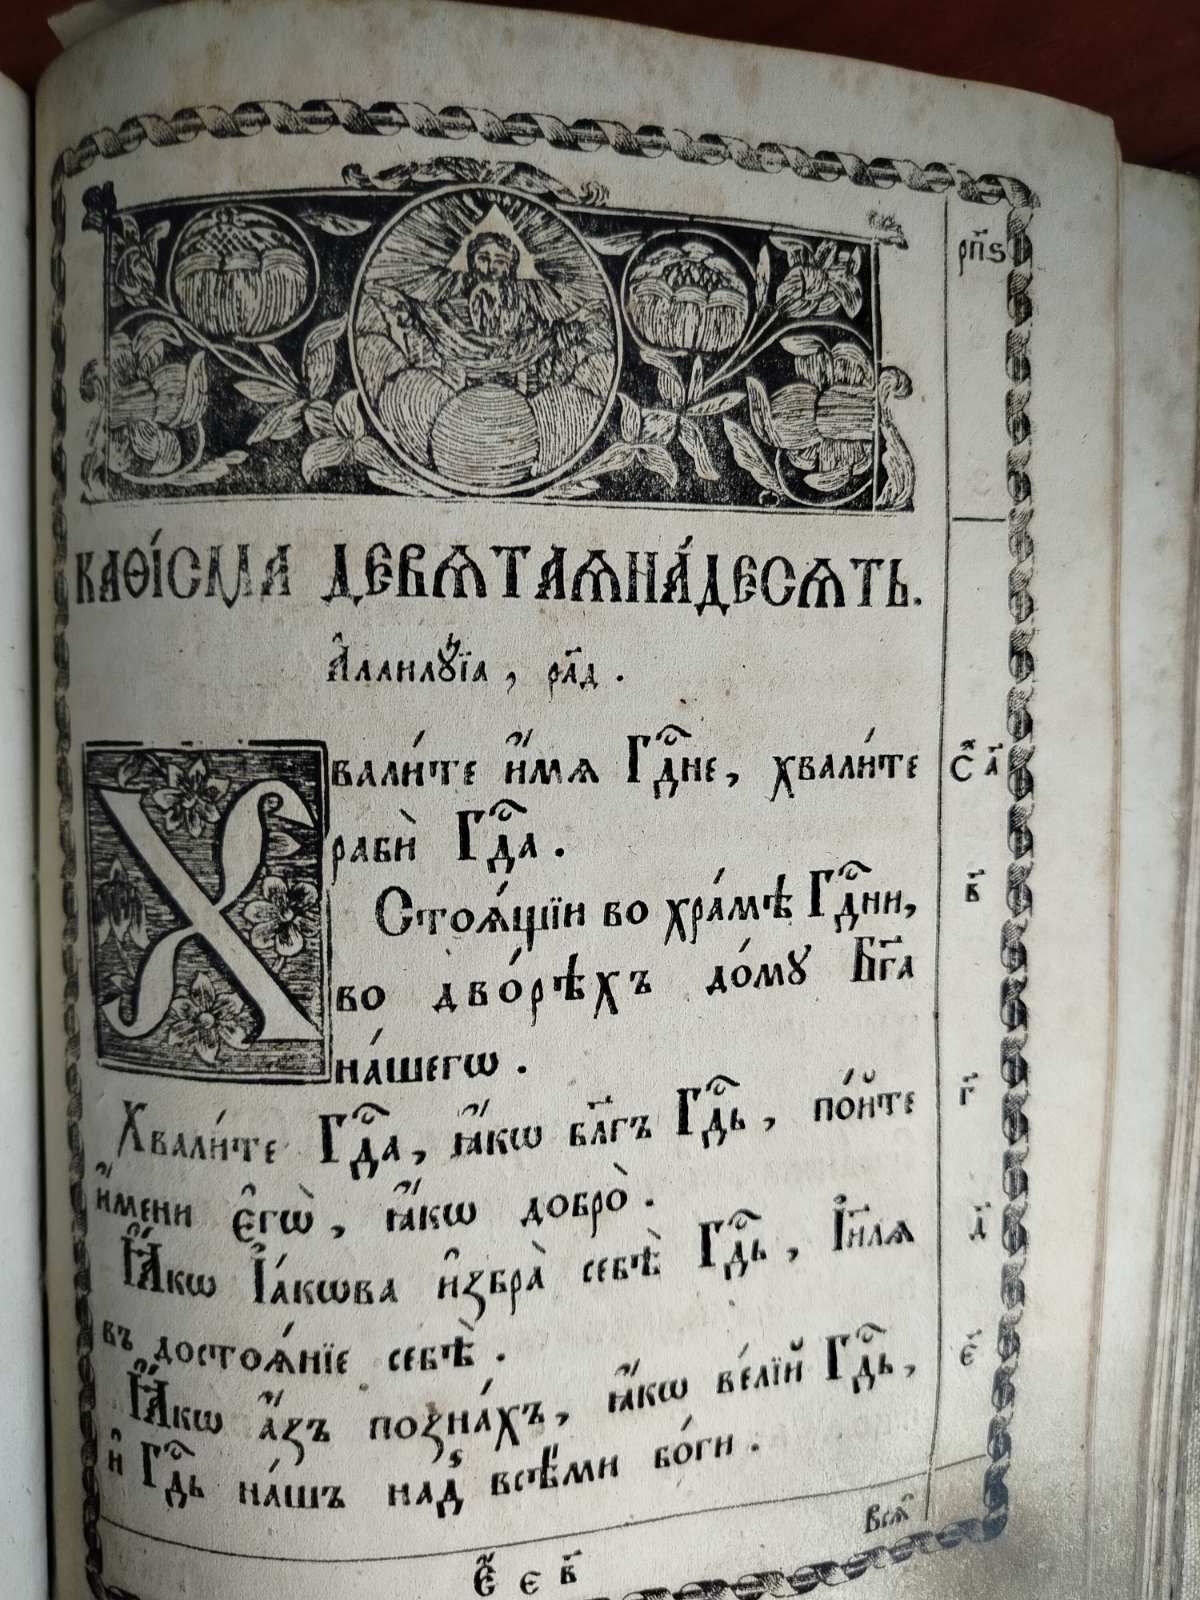 рп҃ѕ
КАѲІ́СМА ДЕВѦТАѦНА́ДЕСѦТЬ.
А҆ллилꙋ́їа, рл҃д.
Хвали́те и҆́мѧ Гдⷭ҇не, хвали́те с҃ а҃
раби̑ Гдⷭ҇а.
Стоѧ́щїи во хра́мѣ Гдⷭ҇ни, в҃
во дво́рѣхъ до́мꙋ Бг҃а
на́шегѡ.
Хвали́те Гдⷭ҇а, ꙗ҆́кѡ бл҃гъ Гдⷭ҇ь, по́йте г҃
и҆́мени є҆гѡ̀, ꙗ҆́кѡ добро̀.
Ꙗ҆́кѡ І҆а́кѡва и҆збра̀ себѣ̀ Гдⷭ҇ь, І҆и҃лѧ д҃
въ достоѧ́нїе себѣ̀.
Ꙗ҆́кѡ а҆́зъ позна́хъ, ꙗ҆́кѡ ве́лїй Гдⷭ҇ь, є҃
и҆ Гдⷭ҇ь на́шъ над̾ всѣ́ми бо́ги.
Всѧ҃
є в҃